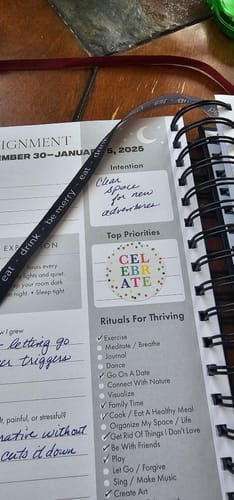 SIGNMENT
EMBER 30—JANUARY 5, 2025
Intention
Clear
space
for new
adventures
eat • drink • be merry • eat
eat •
Top Priorities
CEL
EBR
ATE
Rituals For Thriving
Exercise
Meditate / Breathe
Journal
Dance
Go On A Date
Connect With Nature
Visualize
Family Time
Cook / Eat A Healthy Meal
Organize My Space / Life
Get Rid Of Things I Don't Love
Be With Friends
Play
Let Go / Forgive
Sing / Make Music
Create Art
every
lights and quiet.
your room dark
night. • Sleep tight
w I grew
- letting go
triggers
lt, painful, or stressful?
without
cuts it down